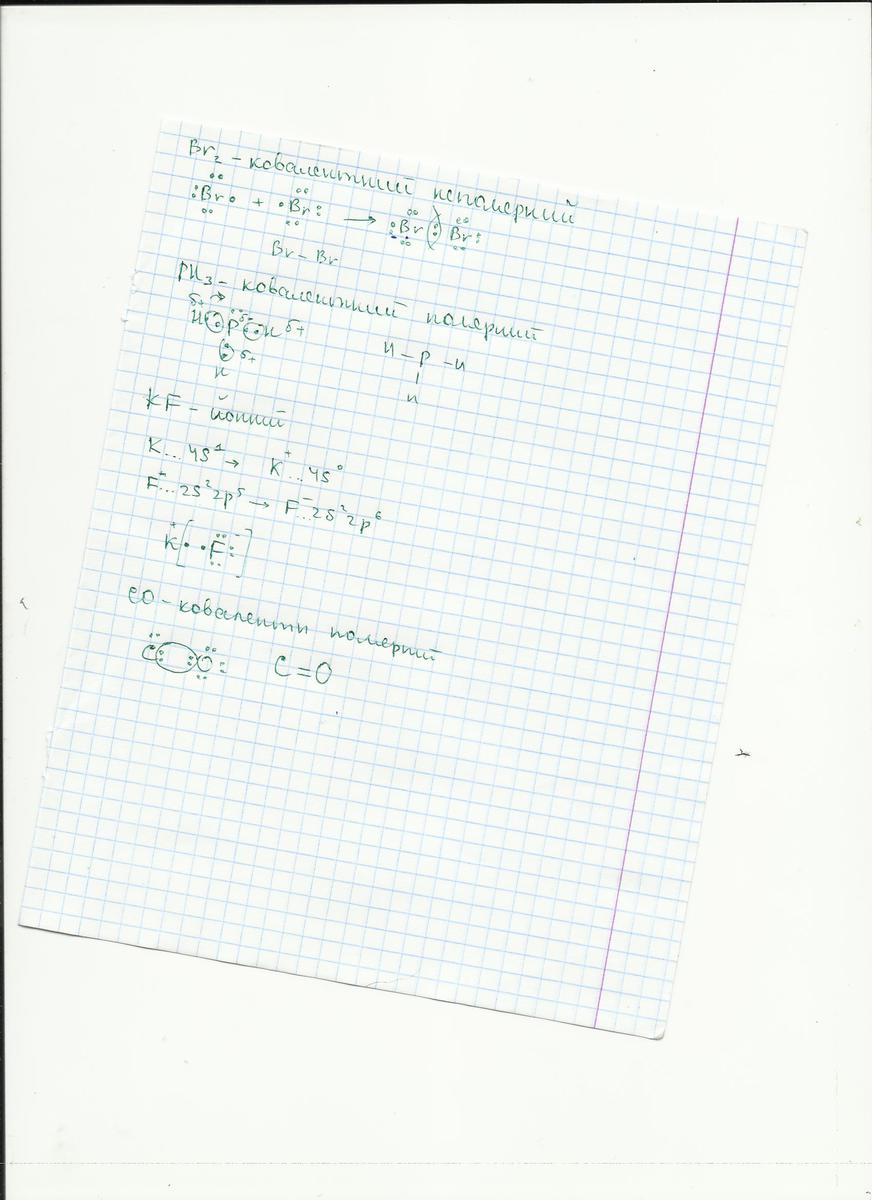 Br₂ - ковалентний неполярний
:Br· + ·Br: → :Br(:)Br:
Br - Br
PH₃ - ковалентний полярний
δ+ →
H : P δ- : H δ+
H - P - H
: δ+
|
H
H
KF - йонний
K...4s¹ → K⁺...4s⁰
F...2s²2p⁵ → F⁻...2s²2p⁶
K⁺[· ·F:]⁻
CO - ковалентн полярний
C : : O : C=O